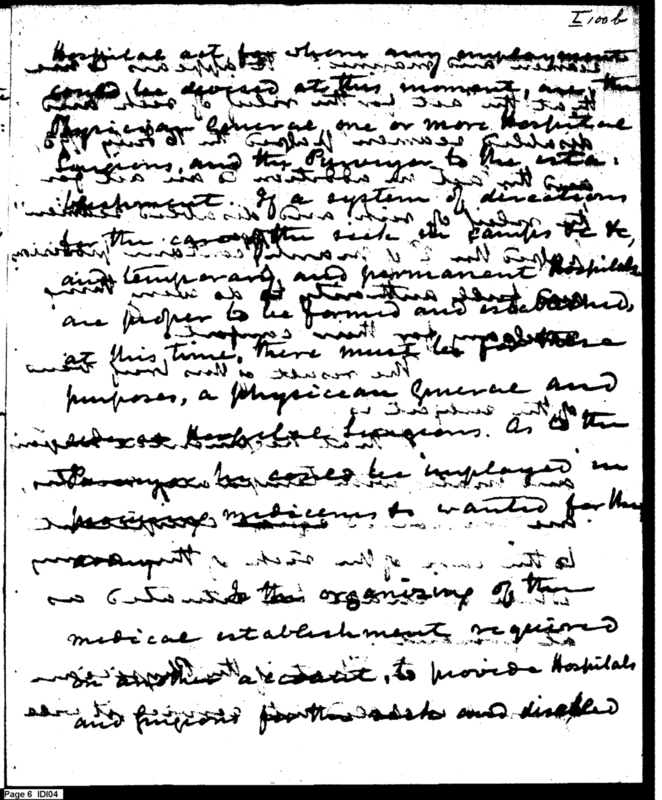 I 100 b
Hospital act for whom any employment
could be devised at this moment, are, the
Physician General, one or more Hospital
Surgions, and the Purveyor to the esta-
blishment. If a system of directions
for the care of the sick in camps &c &c,
and temporary and permanent Hospitals
are proper to be formed and established,
at this time, there must be for these
purposes, a physician General and
Hospital Surgions. As to the
be employed in
medicines wanted for the
Is the organizing of the
medical establishment required
on another account, to provide Hospitals
and Surgions for the sick and disabled
Page 6 IDI04